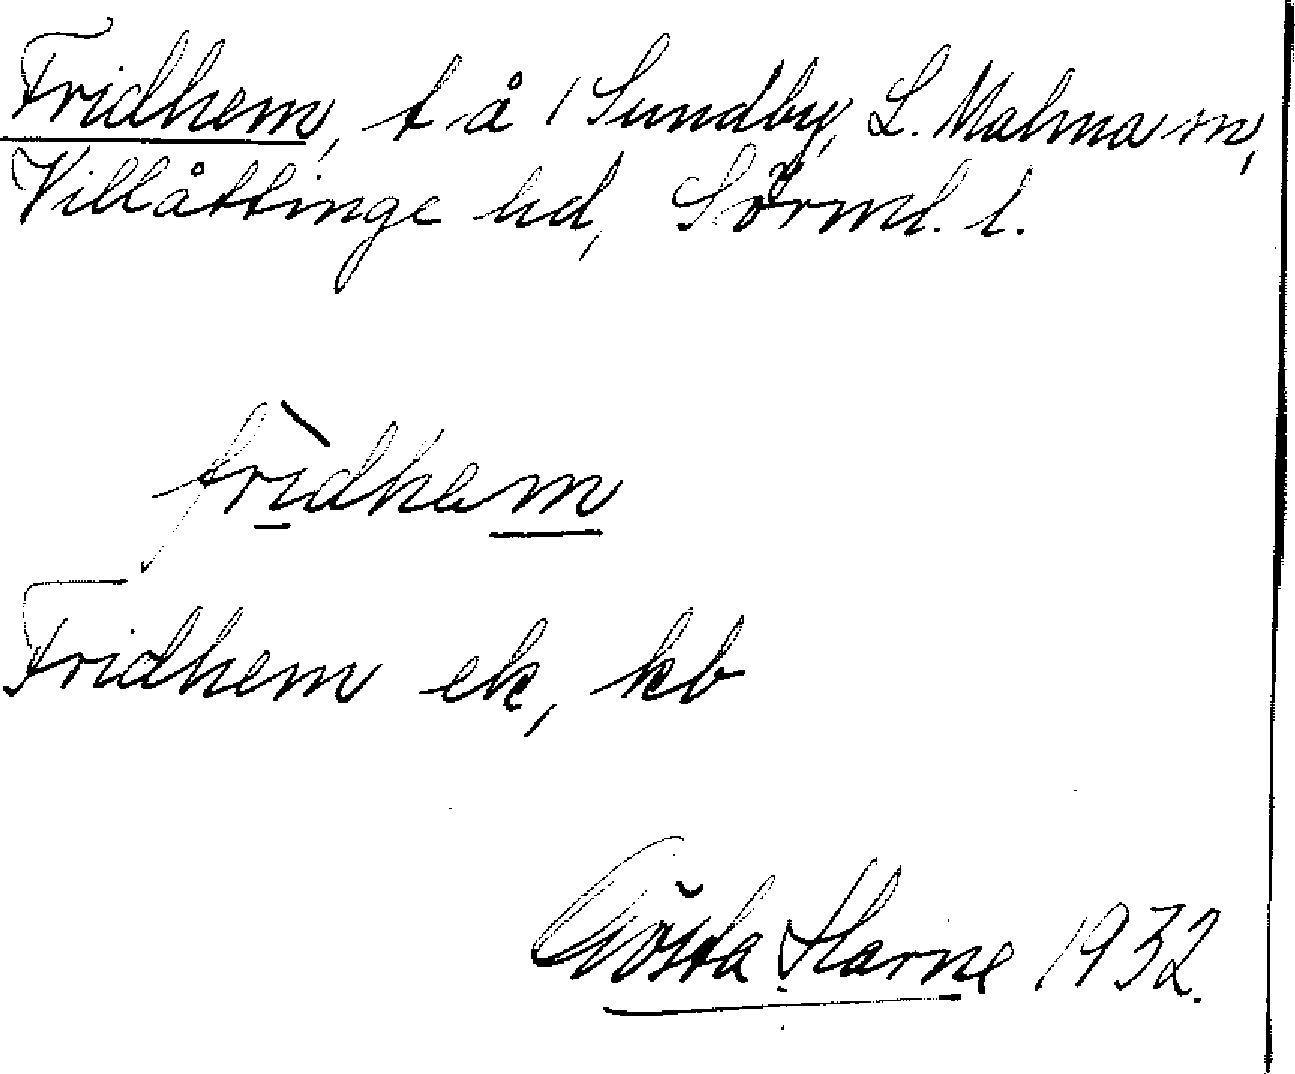 Fridhem, t å 1 Sundby, L. Malma sn,
Villåttinge hd, Sörml. l.
fridhem
Fridhem ek, kb
Gösta Harne 1932.